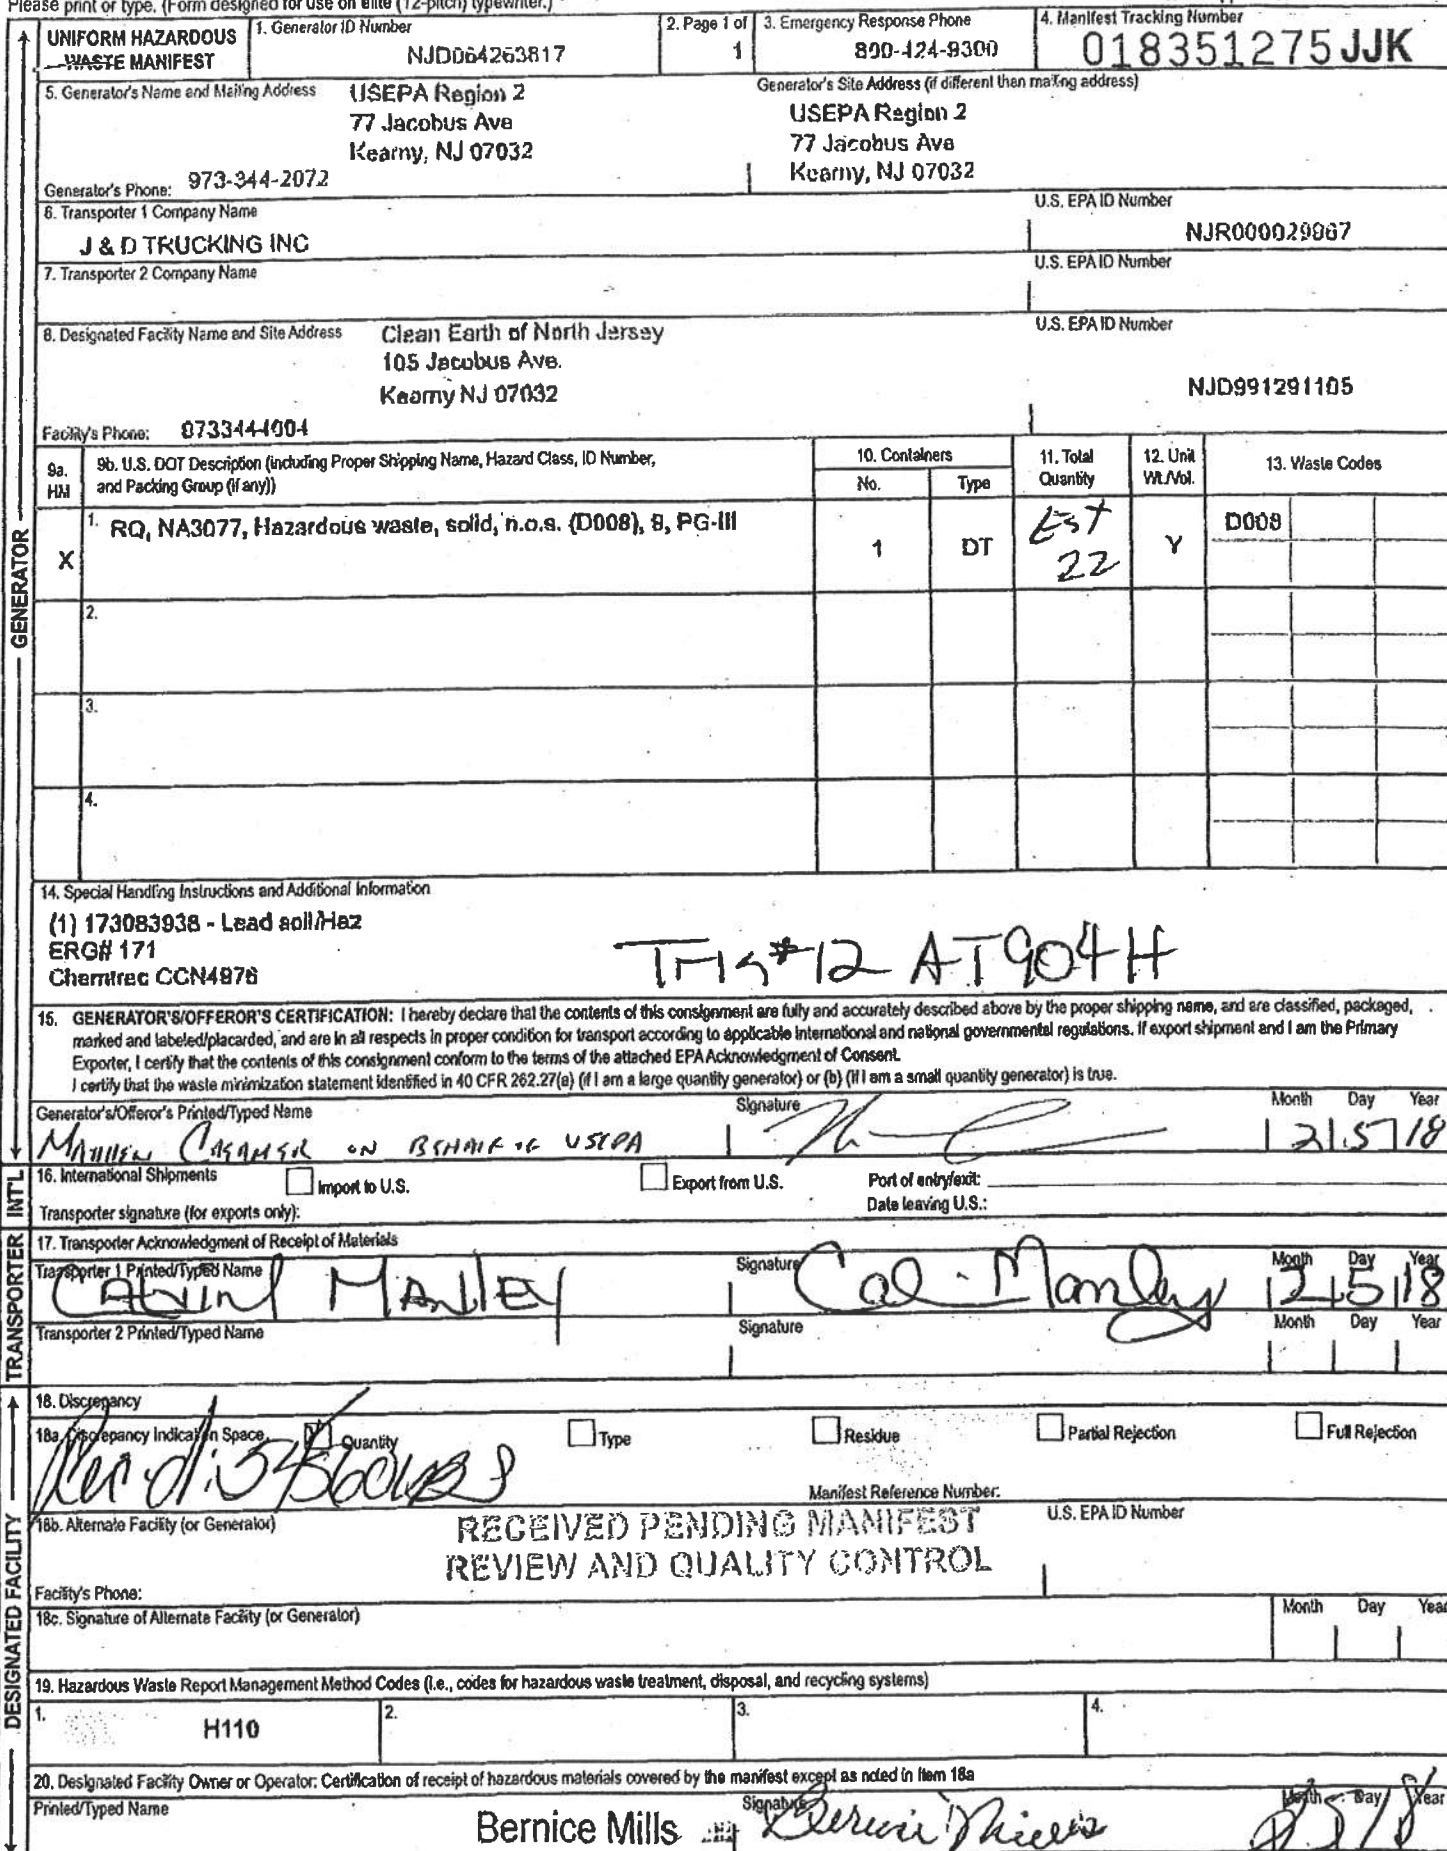 Please print or type. (Form designed for use on elite (12-pitch) typewriter.)
UNIFORM HAZARDOUS WASTE MANIFEST
1. Generator ID Number
NJD064263817
2. Page 1 of
1
3. Emergency Response Phone
800-424-9300
4. Manifest Tracking Number
018351275 JJK
5. Generator's Name and Mailing Address
USEPA Region 2
77 Jacobus Ave
Kearny, NJ 07032
Generator's Site Address (if different than mailing address)
USEPA Region 2
77 Jacobus Ave
Kearny, NJ 07032
Generator's Phone: 973-344-2072
6. Transporter 1 Company Name
J & D TRUCKING INC
U.S. EPA ID Number
NJR000029967
7. Transporter 2 Company Name
U.S. EPA ID Number
8. Designated Facility Name and Site Address
Clean Earth of North Jersey
105 Jacobus Ave.
Kearny NJ 07032
U.S. EPA ID Number
NJD991291105
Facility's Phone: 9733444004
9a. HM
9b. U.S. DOT Description (including Proper Shipping Name, Hazard Class, ID Number, and Packing Group (if any))
10. Containers
No.
Type
11. Total Quantity
12. Unit Wt./Vol.
13. Waste Codes
X
1. RQ, NA3077, Hazardous waste, solid, n.o.s. (D008), 9, PG-III
1
DT
Est 22
Y
D008
2.
3.
4.
14. Special Handling Instructions and Additional Information
(1) 173083938 - Lead soil/Haz
ERG# 171
Chemtrec CCN4976
#12 AT904H
15. GENERATOR'S/OFFEROR'S CERTIFICATION: I hereby declare that the contents of this consignment are fully and accurately described above by the proper shipping name, and are classified, packaged,
marked and labeled/placarded, and are in all respects in proper condition for transport according to applicable international and national governmental regulations. If export shipment and I am the Primary
Exporter, I certify that the contents of this consignment conform to the terms of the attached EPA Acknowledgment of Consent.
I certify that the waste minimization statement identified in 40 CFR 262.27(a) (if I am a large quantity generator) or (b) (if I am a small quantity generator) is true.
Generator's/Offeror's Printed/Typed Name
Signature
Month Day Year
ON BEHALF OF USEPA
12 5 18
16. International Shipments
Import to U.S.
Export from U.S.
Port of entry/exit:
Transporter signature (for exports only):
Date leaving U.S.:
17. Transporter Acknowledgment of Receipt of Materials
Transporter 1 Printed/Typed Name
Signature
Month Day Year
CALVIN MANLEY
Cal Manley
12 5 18
Transporter 2 Printed/Typed Name
Signature
Month Day Year
18. Discrepancy
18a. Discrepancy Indication Space
Quantity
Type
Residue
Partial Rejection
Full Rejection
Manifest Reference Number:
18b. Alternate Facility (or Generator)
RECEIVED PENDING MANIFEST
REVIEW AND QUALITY CONTROL
U.S. EPA ID Number
Facility's Phone:
18c. Signature of Alternate Facility (or Generator)
Month Day Year
19. Hazardous Waste Report Management Method Codes (i.e., codes for hazardous waste treatment, disposal, and recycling systems)
1. H110
2.
3.
4.
20. Designated Facility Owner or Operator: Certification of receipt of hazardous materials covered by the manifest except as noted in Item 18a
Printed/Typed Name
Bernice Mills
Signature
Bernice Mills
Month Day Year
GENERATOR
INT'L
TRANSPORTER
DESIGNATED FACILITY